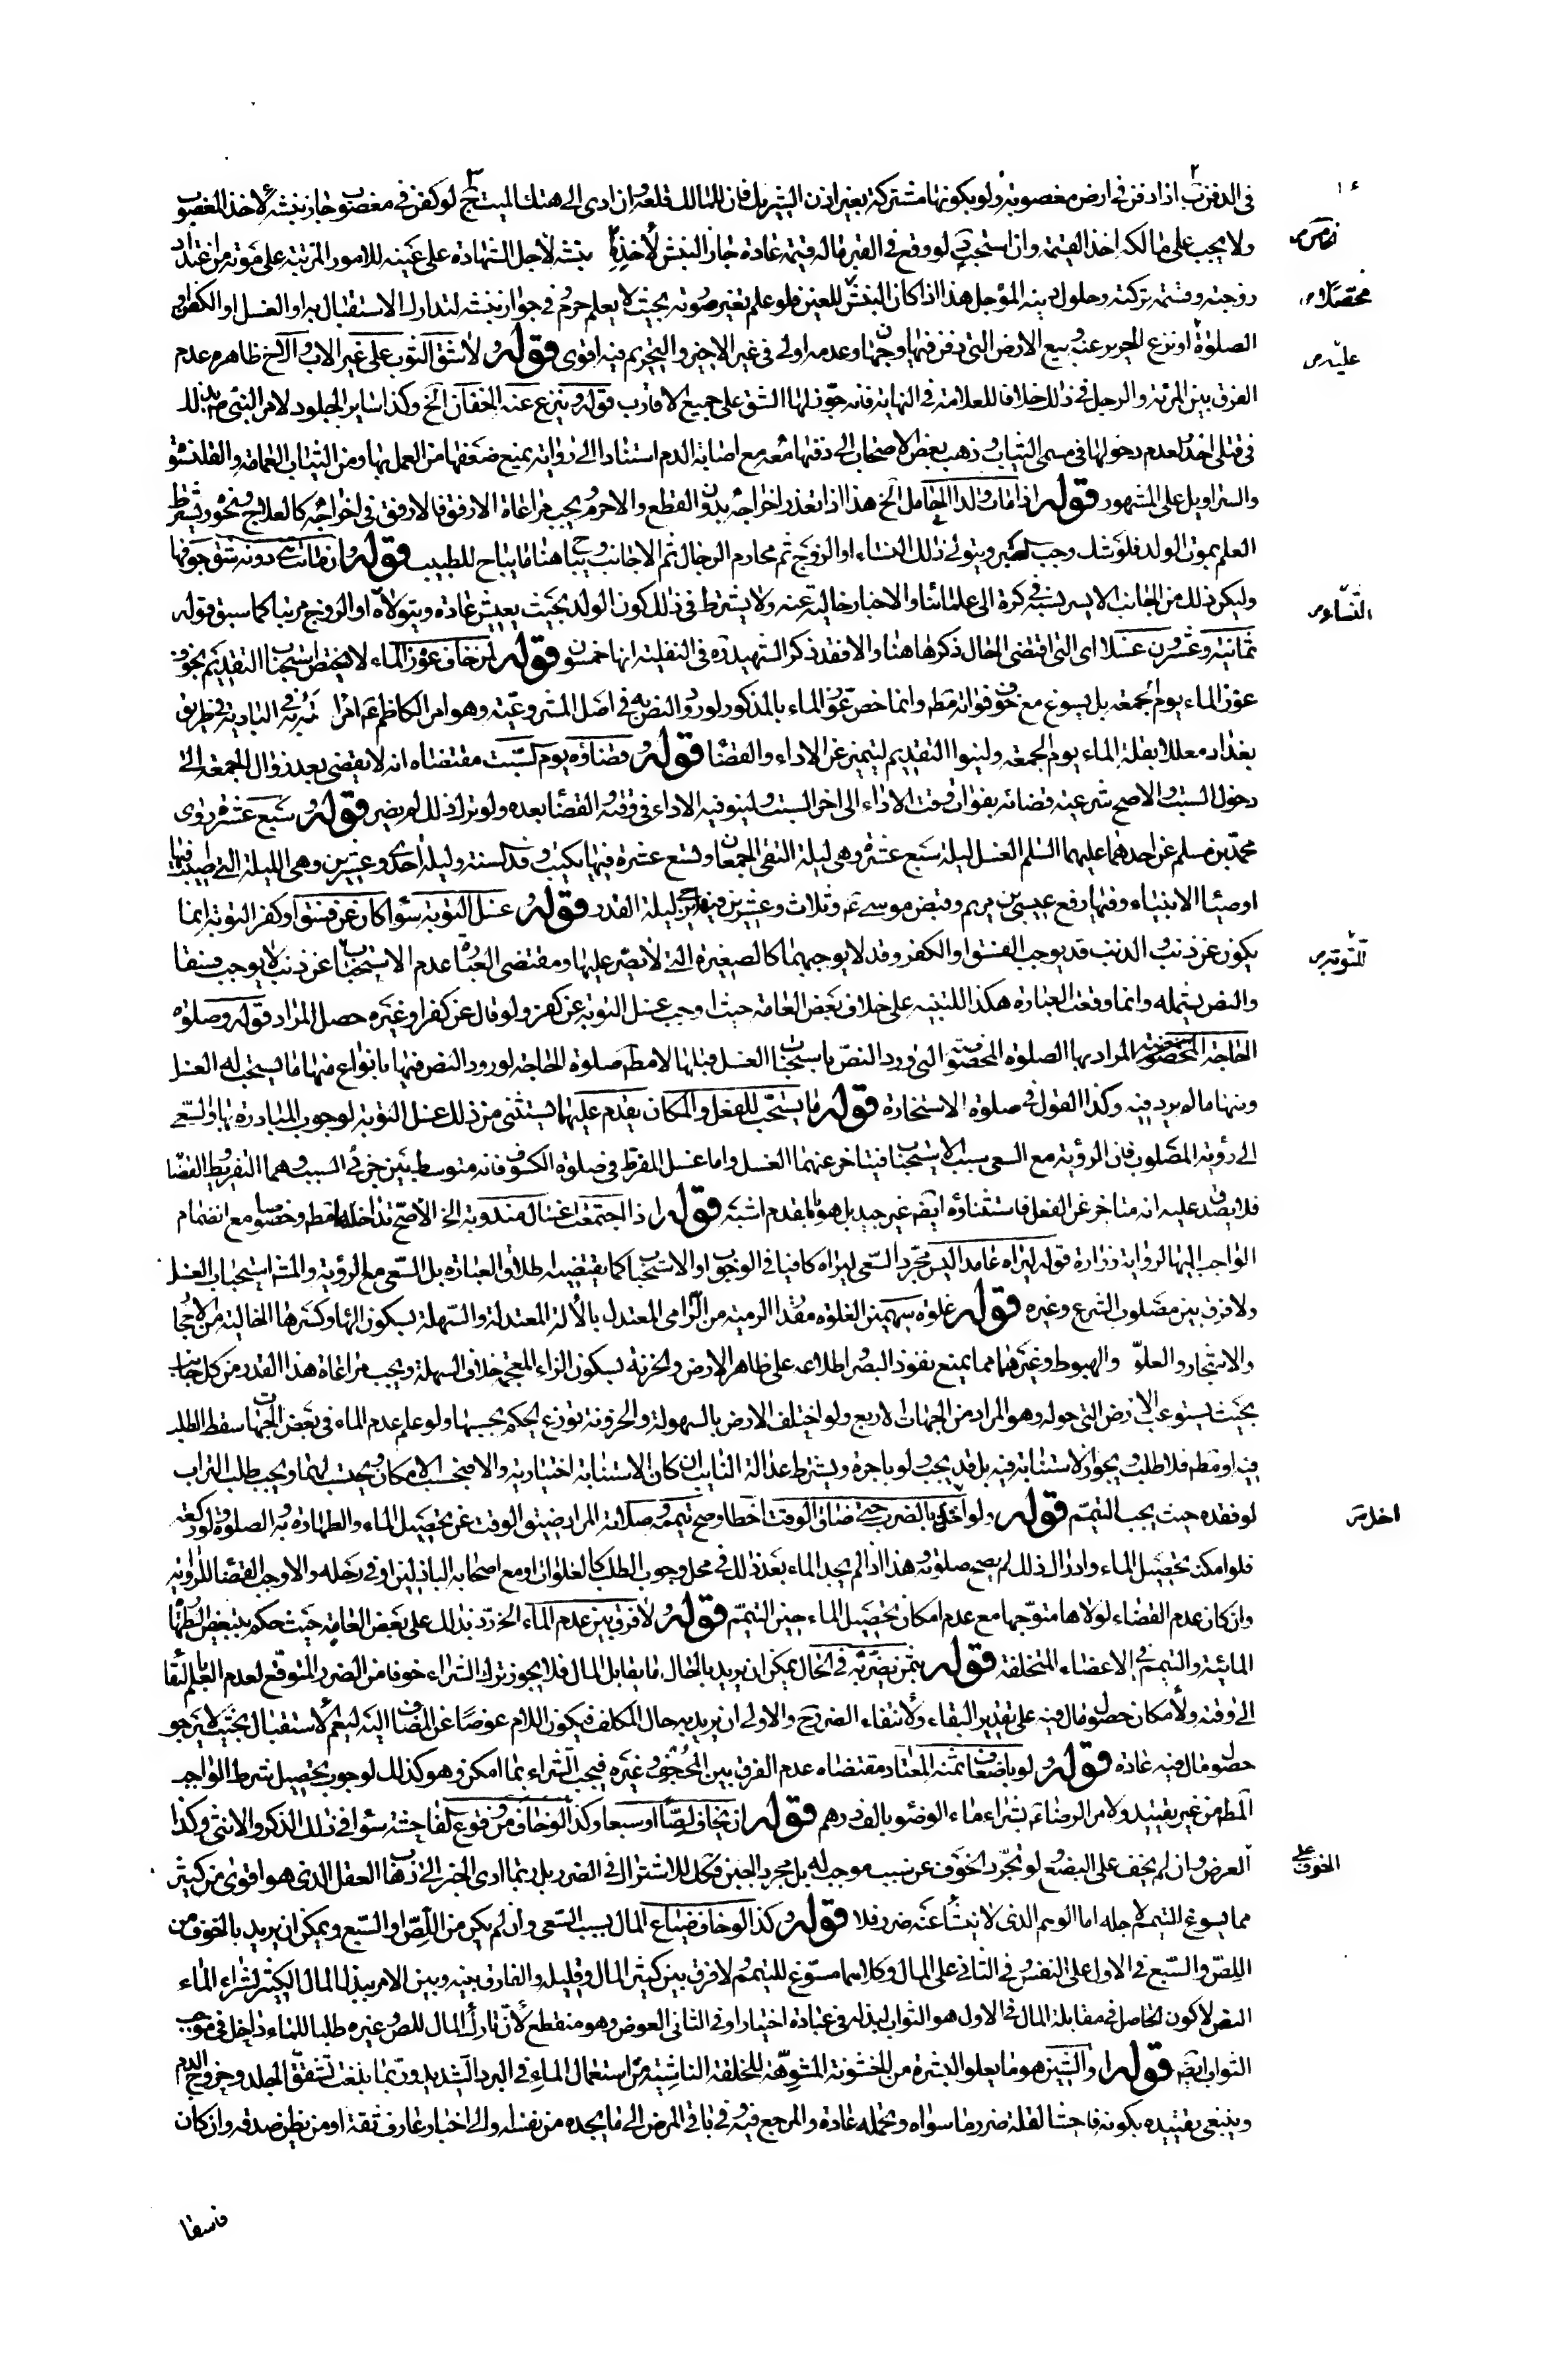 في الدفن ب اذا دفن في ارض مغصوبة ولو بكونها مشتركة بغير اذن الشريك فان للمالك قلعه وان ادى الى هتك الميت ج لو كفن في مغصوب جاز نبشه لاخذ المغصوب
ولا يجب على مالكه اخذ القيمة وان استحب د لو وقع في القبر ماله قيمة عادة جاز النبش لاخذه ه نبشه لاجل الشهادة على عينه للامور المترتبة على موته من اعتداد
زوجته وقسمة تركته وحلول دينه المؤجل هذا اذا كان النبش للعين فلو علم تغير صورته بحيث لا يعلم حرم و في جواز نبشه لتدارك الاستقبال به او الغسل او الكفن او
الصلوة او نزع الحرير عنه و بيع الارض التي دفن فيها وجهان وعدمه اولى في غير الاخير والتحريم فيه اقوى قوله ولا شق الثوب على غير الاب والاخ ظاهره عدم
الفرق بين المرئة والرجل في ذلك خلافا للعلامة في النهاية فانه جوز لها الشق على جميع الاقارب قوله وينزع عنه الخفان الخ وكذا ساير الجلود لامر النبي ص بذلك
في قتلى احد ولعدم دخولها في مسمى الثياب وذهب بعض الاصحاب الى دفنها معه مع اصابة الدم استنادا الى رواية يمنع ضعفها من العمل بها ومن الثياب العمامة والقلنسوة
والسراويل على المشهور قوله اذا مات ولد الحامل الخ هذا اذا تعذر اخراجه بدون القطع والا حرم ويجب مراعاة الارفق فالارفق في اخراجه كالعلاج ونحوه ويشترط
العلم بموت الولد فلو شك وجب الصبر ويتولى ذلك النساء او الزوج ثم محارم الرجال ثم الاجانب و ح يباح هنا ما يباح للطبيب قوله وان ماتت هي دونه شق جوفها
وليكن ذلك من الجانب الايسر نسبه في كرة الى علمائنا والاخبار خالية عنه ولا يشترط في ذلك كون الولد بحيث يعيش عادة ويتولاه او الزوج مرتبا كما سبق قوله
ثمانية وعشرون غسلا اي التي اقتضى الحال ذكرها هنا والا فقد ذكر الشهيد ره في النفلية انها خمسون قوله لمن خاف عوز الماء لا يختص استحباب التقديم بخوف
عوز الماء يوم الجمعة بل يسوغ مع خوف فواته مط وانما خص عوز الماء بالمذكور لورود النص به في اصل المشروعية وهو امر الكاظم ع امرا به في البادية في طريق
بغداد معللا بقلة الماء يوم الجمعة ولينوا التقديم ليتميز عن الاداء والقضا قوله وقضاؤه يوم السبت مقتضاه انه لا يقضى بعد زوال الجمعة الى
دخول السبت والاصح شرعية قضائه بفوات وقت الاداء الى اخر السبت ولينو فيه الاداء في وقته والقضا بعده ولو ترك ذلك لم يضر قوله وسبع عشرة روى
محمد بن مسلم عن احدهما عليهما السلم الغسل ليلة سبع عشرة وهي ليلة التقى الجمعان وتسع عشرة فيها يكتب وفد السنة وليلة احدى وعشرين وهي الليلة التي اصيب فيها
اوصياء الانبياء وفيها رفع عيسى بن مريم وقبض موسى ع وثلاث وعشرين فيها يرجى ليلة القدر قوله وغسل التوبة سواء كان عن فسق او كفر التوبة انما
يكون عن ذنب والذنب قد يوجب الفسق او الكفر وقد لا يوجبهما كالصغيرة التي لا يصر عليها ومقتضى العبارة عدم الاستحباب عن ذنب لا يوجب فسقا
والنص يشمله وانما وقعت العبارة هكذا للتنبيه على خلاف بعض العامة حيث اوجب غسل التوبة عن كفر ولو قال عن كفر او غيره حصل المراد قوله وصلوة
الحاجة المخصوصة المراد بها الصلوة المخصوصة التي ورد النص باستحباب الغسل قبلها لا مطلق صلوة الحاجة لورود النص فيها بانواع منها ما يستحب له الغسل
ومنها ما لم يرد فيه وكذا القول في صلوة الاستخارة قوله ما يستحب للفعل والمكان يقدم عليهما يستثنى من ذلك غسل التوبة لوجوب المبادرة بها والسعي
الى رؤية المصلوب فان الرؤية مع السعي سبب الاستحباب فيتاخر عنهما الغسل واما غسل المفرط في صلوة الكسوف فانه متوسط بين جزئي السبب وهما التفريط والقضا
فلا يصدق عليه انه متاخر عن الفعل فاستثناؤه ايضا غير جيد بل هو بالمقدم اشبه قوله اذا اجتمعت اغسال مندوبة الخ الاصح تداخلها مط وخصوصا مع انضمام
الواجب اليها لرواية زرارة قوله ليراه عامدا ليس مجرد السعي ليراه كافيا في الوجوب او الاستحباب كما يقتضيه اطلاق العبارة بل السعي مع الرؤية والمشهور استحباب الغسل
ولا فرق بين مصلوب الشرع وغيره قوله غلوة سهمين الغلوة مقدار الرمية من الرامي المعتدل بالالة المعتدلة والسهلة بسكون الهاء وكسرها الخالية من الاحجار
والاشجار والعلو والهبوط وغيرهما مما يمنع نفوذ البصر واطلاعه على ظاهر الارض والحزنة بسكون الزاء المعجمة خلاف السهلة ويجب مراعاة هذا القدر من كل جانب
بحيث يستوعب الارض التي حوله وهو المراد من الجهات الاربع ولو اختلف الارض بالسهولة والحزونة توزع الحكم بحسبها ولو علم عدم الماء في بعض الجهات سقط الطلب
فيه او مط فلا طلب ويجوز الاستنابة فيه بل قد يجب ولو باجرة ويشترط عدالة النايب ان كان الاستنابة اختيارية والا فبحسب الامكان ويحتسب لهما ويجب طلب التراب
لو فقده حيث يجب التيمم قوله ولو اخل بالضرب حتى ضاق الوقت اخطا وصح تيممه وصلاته المراد ضيق الوقت عن تحصيل الماء والطهارة به والصلوة ولو ركعة
فلو امكن تحصيل الماء وادراك ذلك لم يصح صلوته وهذا اذا لم يجد الماء بعد ذلك في محل وجوب الطلب كالغلوات او مع اصحابه الباذلين او في رحله والا وجب القضاء للرواية
وان كان عدم القضاء لولاها متوجها مع عدم امكان تحصيل الماء حين التيمم قوله ولا فرق بين عدم الماء الخ رد بذلك على بعض العامة حيث حكم بتبعيض الطهارة
المائية والتيمم في الاعضاء المتخلفة قوله بثمن يضر به في الحال يمكن ان يريد بالحال ما يقابل المال فلا يجوز ترك الشراء خوفا من الضرر المتوقع لعدم العلم بالبقاء
الى وقته ولامكان حصول مال فيه على تقدير البقاء ولانتفاء الضرر ح والاولى ان يريد به حال المكلف فيكون اللام عوضا عن المضاف اليه ليعم الاستقبال بحيث لا يرجو
حصول مال فيه عادة قوله ولو باضعاف ثمنه المعتاد مقتضاه عدم الفرق بين المجحف وغيره فيجب الشراء بما امكن وهو كذلك لوجوب تحصيل شرط الواجب
المط من غير تقييد ولامر الرضا ع بشراء ماء الوضوء بالف درهم قوله ان يخاف لصا او سبعا وكذا لو خاف من وقوع الفاحشة سواء في ذلك الذكر والانثى وكذا
العرض وان لم يخف على البضع ولو تجرد الخوف عن سبب موجب له بل مجرد الجبن فكذلك للاشتراك في الضرر بل ربما ادى الجبن الى ذهاب العقل الذي هو اقوى من كثير
مما يسوغ التيمم لاجله اما الوهم الذي لا ينشأ عنه ضرر فلا قوله وكذا لو خاف ضياع المال بسبب السعي وان لم يكن من اللص او السبع ويمكن ان يريد بالخوف من
اللص والسبع في الاول على النفس وفي الثاني على المال وكلاهما مسوغ للتيمم ولا فرق بين كثير المال وقليله والفارق بينه وبين الامر ببذل المال الكثير لشراء الماء
النص لا كون الحاصل في مقابلة المال في الاول هو الثواب لبذله في عبادة اختيارا وفي الثاني العوض وهو منقطع لان تارك المال للص وغيره طلبا للماء داخل في موجب
الثواب ايضا قوله او الشين هو ما يعلو البشرة من الخشونة المشوهة للخلقة الناشية من استعمال الماء في البرد الشديد وربما بلغت تشقق الجلد وخروج الدم
وينبغي تقييده بكونه فاحشا لقلة ضرر ما سواه وتحمله عادة والمرجع فيه وفي باقي المرض الى ما يجده من نفسه او الى اخبار عارف ثقة او من يظن صدقه وان كان
فاسقا
محصلا ص
عليه ص
النساء ص
اخل ص
الخوف على